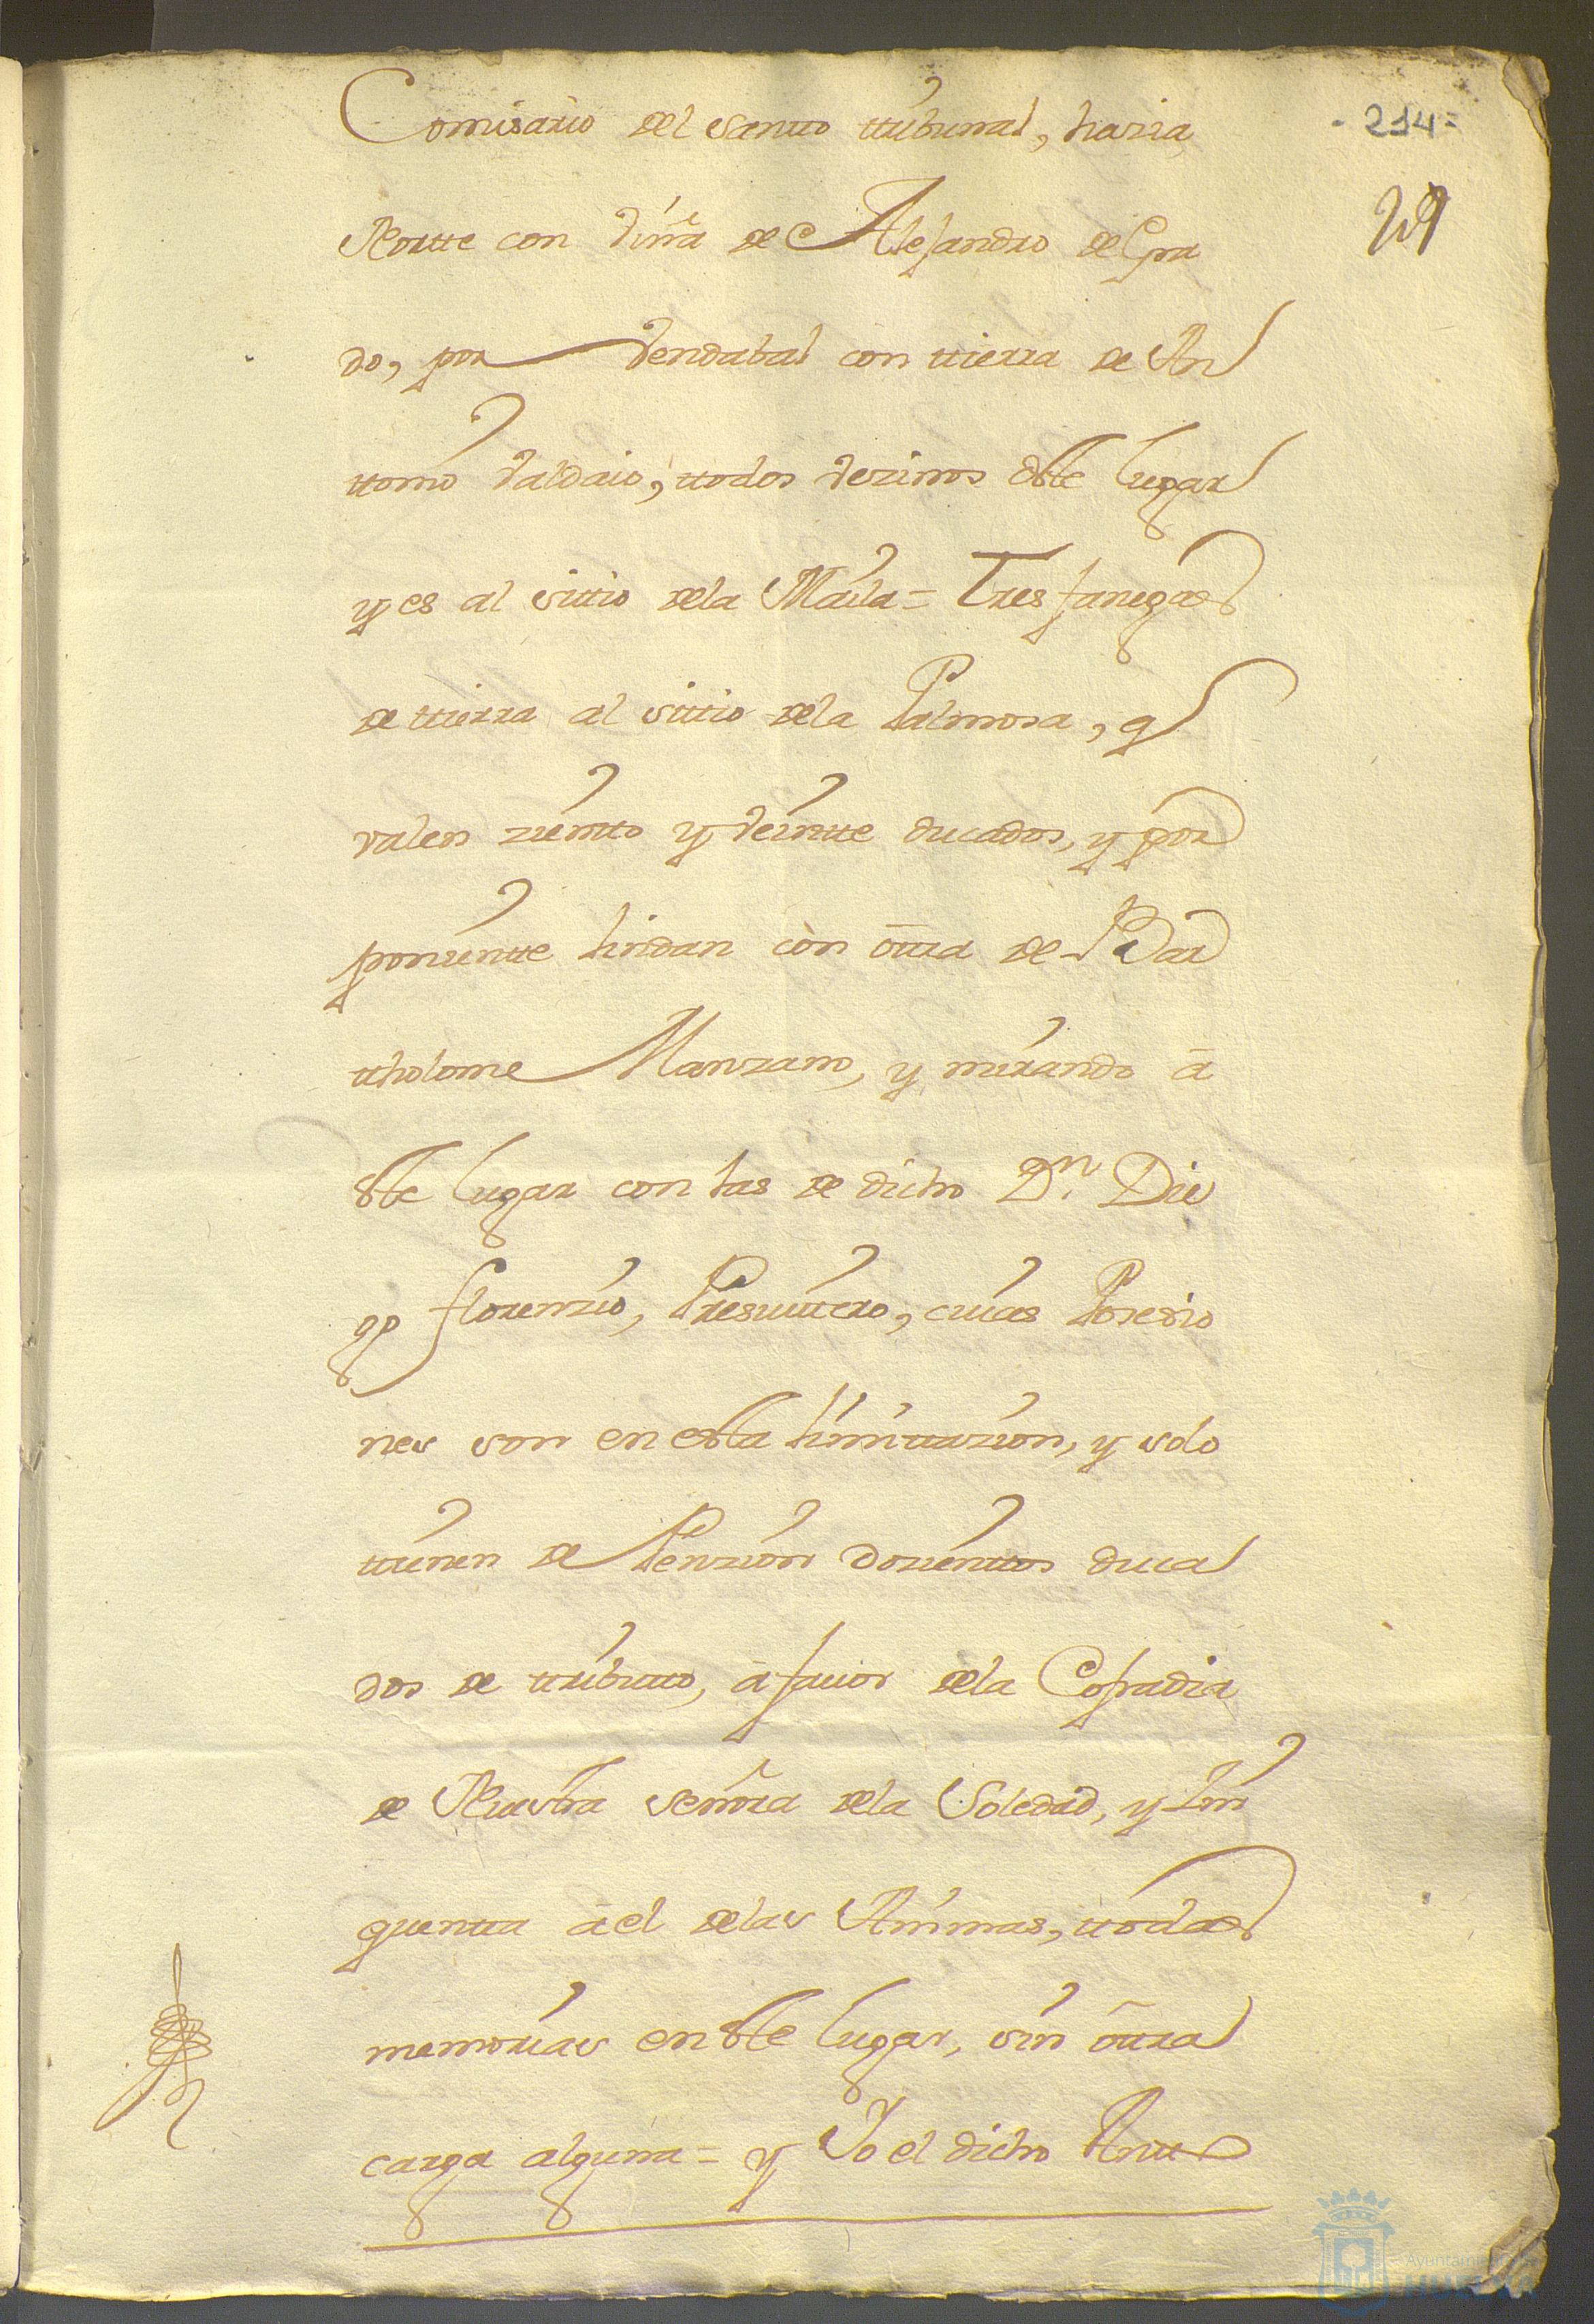 - 214 =
Comisario del santto ttribunal, hazia
29
Nortte con viña de Alejandro de Pra
do, por vendabal con ttierra de An
ttonio Valdaio, ttodos vezinos deste lugar
y es al sittio dela Maila = Tres fanegas
de ttierra al sittio dela Palmosa, q
valen ziento y veintte ducados, y por
ponientte lindan con ottra de Bar
ttholome Manzano, y mirando a
este lugar con las de dicho Dn. Die
go florenzio, Presvittero, cuias Posesio
nes son en esta limittazion, y solo
ttienen de Penzion dozienttos duca
dos de ttributto, a favor dela Cofradia
de Nuestra señora dela Soledad, y sin
quentta a el delas Animas, ttodas
memorias en este lugar, sin ottra
carga alguna = y Yo el dicho Antt
Ayuntamiento de
HUELVA